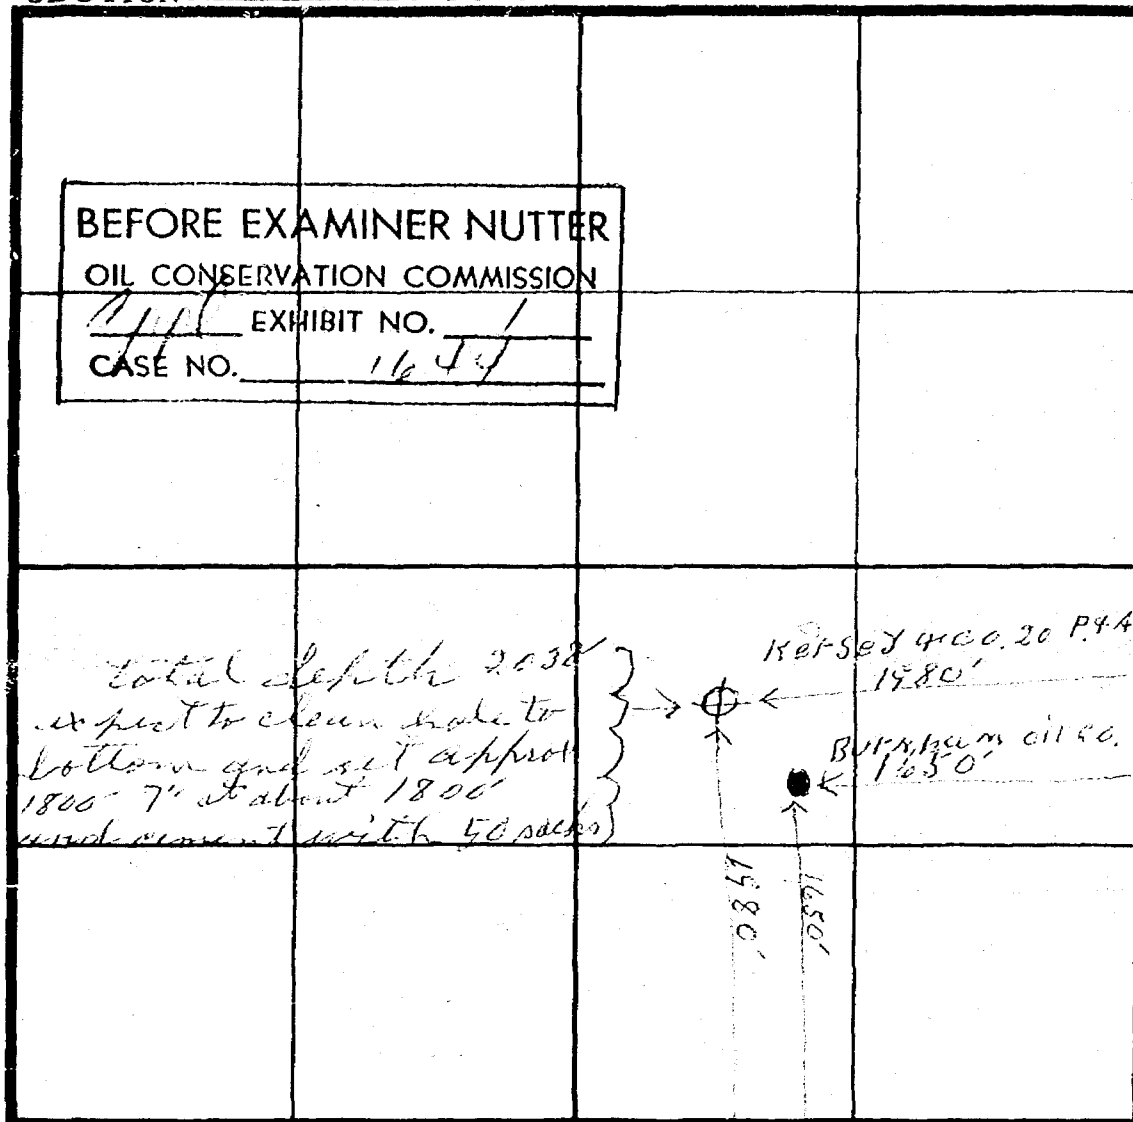 BEFORE EXAMINER NUTTER
OIL CONSERVATION COMMISSION
EXHIBIT NO. 1
CASE NO. 1644
total depth 2038'
expect to clean hole to
bottom and set approx
1800' 7" at about 1800'
and cement with 50 sacks
Kersey & Co. 20 P&A
1980'
Burnham oil co.
1650'
1980'
1650'